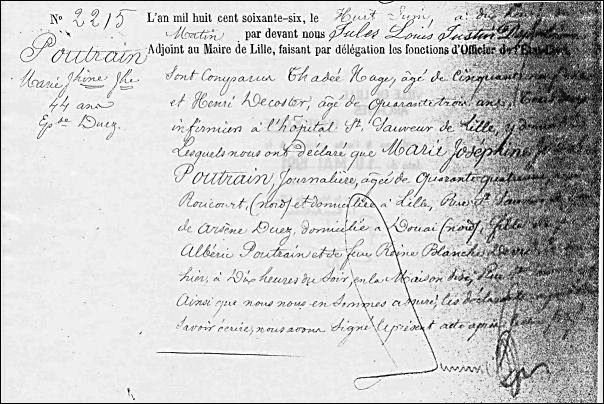 N° 2215
Poutrain
Marie Jhine Jhe
44 ans
Epse Duez.
L'an mil huit cent soixante-six, le Huit Juin, à dix heures
Matin par devant nous Jules Louis Justin
Adjoint au Maire de Lille, faisant par délégation les fonctions d'Officier de l'État
Sont Comparus Thadée Hage, âgé de Cinquante
et Henri Decoster, âgé de Quarante trois ans, Tous deux
infirmiers à l'hôpital St. Sauveur de Lille, y
Lesquels nous ont déclaré que Marie Joséphine
Poutrain Journalière, âgée de Quarante quatre
Roucourt, (nord) et domiciliée à Lille, Rue St. Sauveur
de Arsène Duez, domicilié à Douai (nord), fille
Albéric Poutrain et de feue Reine Blanche
hier, à Dix heures du Soir, en la Maison sise, Rue St.
Ainsi que nous nous en sommes assuré; les déclarants
Savoir écrire, nous avons Signé le présent acte après lecture